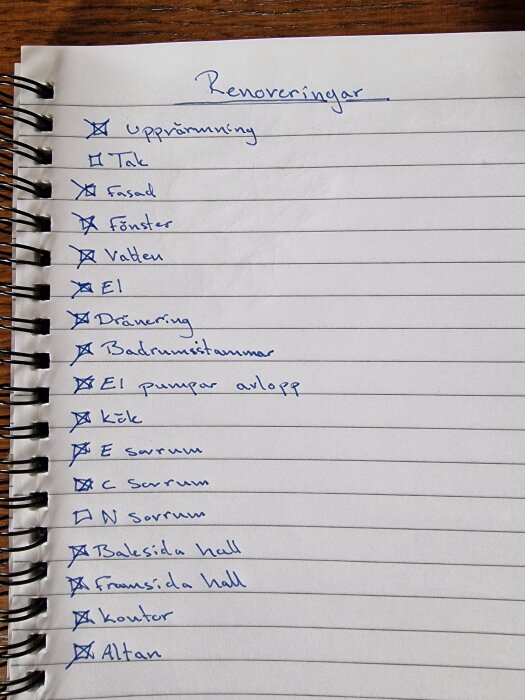 Renoveringar
☒ Uppvärmning
☐ Tak
☒ Fasad
☒ Fönster
☒ Vatten
☒ El
☒ Dränering
☒ Badrumsstammar
☒ El pumpar avlopp
☒ Kök
☒ E sovrum
☒ C Sovrum
☐ N Sovrum
☒ Baksida hall
☒ Framsida hall
☒ Kontor
☒ Altan